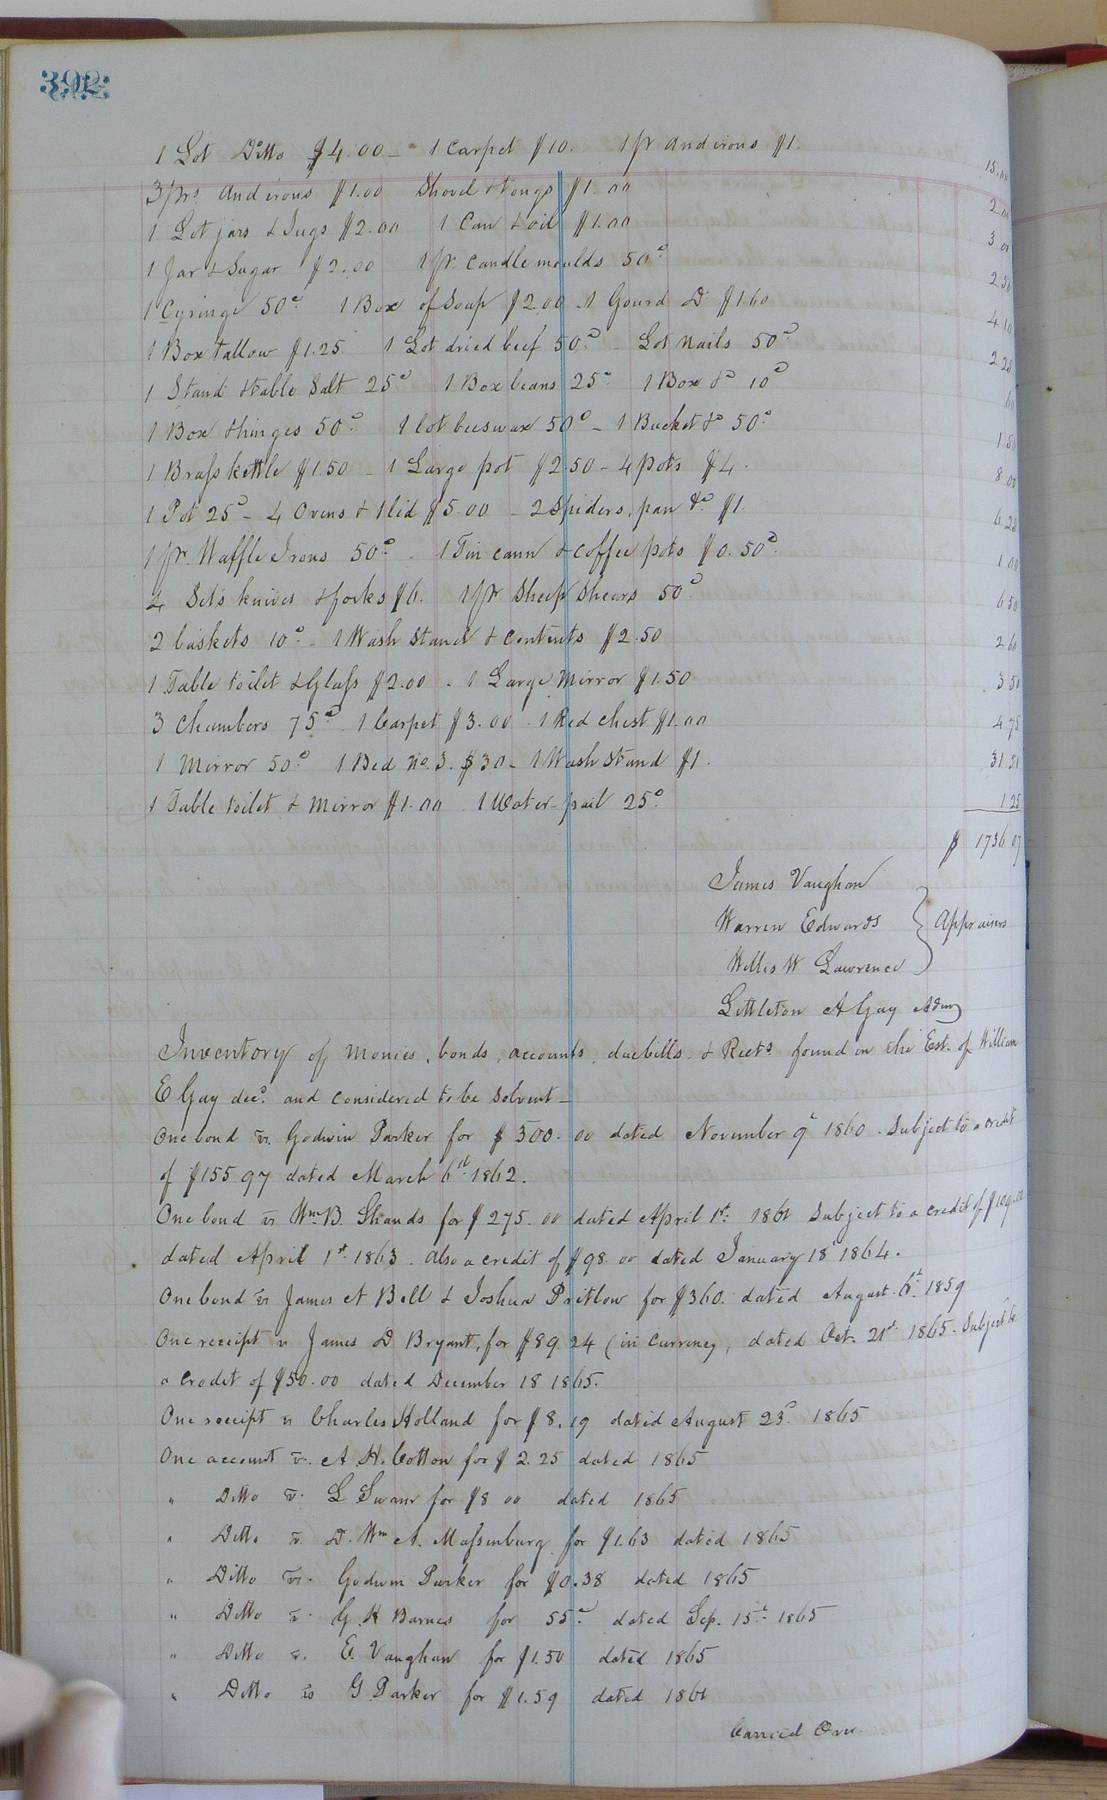 392
1 Lot Ditto $4.00 – 1 Carpet $10. 1 pr Andirons $1. 15.00
3 prs Andirons $1.00 Shovel & Tongs $1.00 2.00
1 Lot jars & Jugs $2.00 1 Can & oil $1.00 3.00
1 Jar & Sugar $2.00 1 pr. Candle moulds 50c 2.50
1 Cyringe 50c 1 Box of Soap $2.00 – 1 Gourd Do $1.60 4.10
1 Box tallow $1.25 1 Lot dried beef 50c – Lot Nails 50c 2.25
1 Stand & table Salt 25c 1 Box beans 25c 1 Box &c 10c 60
1 Box & hinges 50c 1 lot beeswax 50c – 1 Bucket &c 50c 1.50
1 Brass kettle $1.50 – 1 Large pot $2.50 – 4 pots $4. 8.00
1 Pot 25c – 4 Ovens & 1 lid $5.00 – 2 Spiders, pan &c $1. 6.25
1 pr. Waffle Irons 50c – 1 Tin cann & coffee pots $0.50c 1.00
4 Sets knives & forks $6. 1 pr Sheep Shears 50c 6.50
2 baskets 10c – 1 Wash Stand & contents $2.50 2.60
1 Table toilet & Glass $2.00 – 1 Large Mirror $1.50 3.50
3 Chambers 75c 1 Carpet $3.00 – 1 Red chest $1.00 4.75
1 Mirror 50c 1 Bed No. 3. $30 – 1 Wash Stand $1. 31.50
1 Table toilet & Mirror $1.00 1 Water pail 25c 1.25
$ 1736.07
James Vaughan
Warren Edwards } Appraisers
Willis W Lawrence
Littleton A Gay Adm
Inventory of monies, bonds, accounts, duebills & Rects found in the Est. of William
E Gay decd. and considered to be solvent –
One bond vs. Godwin Parker for $300.00 dated November 9th 1860. Subject to a credit
of $155.97 dated March 6th 1862.
One bond vs Wm B. Shands for $275.00 dated April 1st 1861 Subject to a credit of
dated April 1st 1863. Also a credit of $98.00 dated January 18 1864.
One bond vs James A Bell & Joshua Pritlow for $360. dated August 6th 1859
One receipt vs James D Bryant, for $89.24 (in currency, dated Oct. 21st 1865. Subject to
a credit of $50.00 dated December 18 1865.
One receipt vs Charles Holland for $8.19 dated August 23d 1865
One account vs. A. H. Cotton for $2.25 dated 1865
" Ditto vs. L Swann for $8.00 dated 1865
" Ditto vs. D. Wm A. Massenburg for $1.63 dated 1865
" Ditto vs. Godwin Parker for $0.38 dated 1865
" Ditto vs. G. H Barnes for 55c dated Sep. 15th 1865
" Ditto vs. E. Vaughan for $1.50 dated 1865
" Ditto vs G Parker for $1.59 dated 1861
Carried Over.